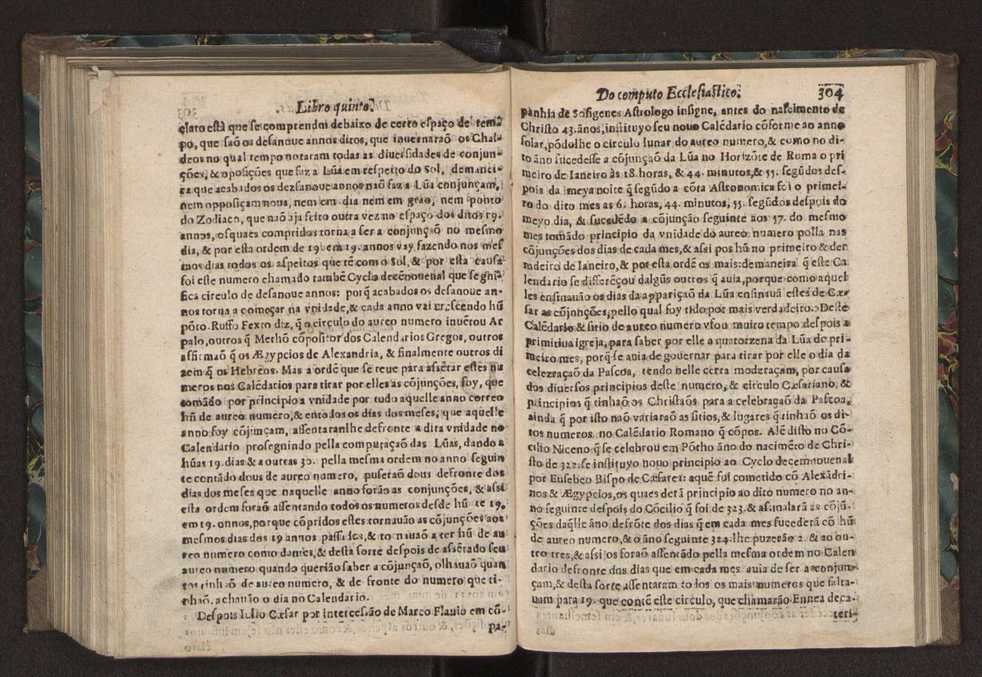 Libro quinto.
claro está que se comprendeu debaixo de certo espaço de tem-
po, que saõ os desanoue annos ditos, que inuentaraõ os Chal-
deos no qual tempo notaram todas as diuersidades de conjun-
ções, & oposições que faz a Lũa em respeito do Sol, demanei-
ra que acabados os dezsanoue annos naõ faz a Lũa conjunçam,
nem opposiçam noua, nem em dia nem em grao, nem ponto
do Zodiaco, que naõ aja feito outra vez no espaço dos ditos 19.
annos, os quaes compridos torna a ser a conjunçaõ no mesmo
dia, & por esta ordem de 19. em 19. annos vay fazendo nos mes
mos dias todos os aspeitos que tẽ com o Sol, & por esta causa
foi este numero chamado tambẽ Cyclo decẽnouenal que signi-
fica circulo de desanoue annos: porq̃ acabados os desanoue an-
nos torna a começar na vnidade, & cada anno vai crescendo hũ
põto. Ruffo Fexto diz, q̃ o circulo do aureo numero inuẽtou Ar
palo, outros q̃ Methõ cõpositor dos Calendarios Gregos, outros
affirmaõ q̃ os Ægypcios de Alexandria, & finalmente outros di
zem q̃ os Hebreos. Mas a ordẽ que se teue pàra assẽtar estes nu
meros nos Calẽdarios para tirar por elles as cõjunções, foy, que
tomãdo por principio a vnidade por tudo aquelle anno correo
hũ de aureo numero, & em todos os dias dos meses, que aquelle
anno foy cõjunçam, assentaranlhe defronte a dita vnidade no
Calendario prosegnindo pella computaçaõ das Lũas, dando a
hũas 29. dias & a outras 30. pella mesma ordem no anno seguin
te contado dous de aureo numero, puseraõ dous defronte dos
dias dos meses que naquelle anno foraõ as conjunções, & assi
esta ordem foraõ assentando todos os numeros desde hũ te 19.
em 19. annos, porque cõpridos estes tornauão as cõjunções aos
mesmos dias dos 19 annos passados, & tornauaõ a ter hũ de au
reo numero como dantes, & desta sorte despois de assẽtado seu
aureo numero quando querião saber a cõjunçaõ, olhauaõ quan
tos tinhaõ de aureo numero, & de fronte do numero que ti-
nhaõ, achauão o dia no Calendario.
Despois Iulio Cæsar por intercessão de Marco Flauio em cõ-
pa-
Do computo Ecclesiastico. 304
panhia de Sosigenes Astrologo insigne, antes do nascimento de
Christo 43. ãnos, instituyo seu nouo Calẽdario cõforme ao anno
solar, põdolhe o circulo lunar do aureo numero, & como no di-
to ãno sucedesse a cõjunçaõ da Lũa no Horizõte de Roma o pri
meiro de Ianeiro às 18. horas, & 44. minutos, & 55. segũdos des-
pois da meya noite q̃ segũdo a cõta Astronomica foi o primei-
ro do dito mes as 6. horas, 44. minutos, 55. segũdos despois do
meyo dia, & sucedẽdo a cõjunção seguinte aos 57. do mesmo
mes tomãdo principio da vnidade do aureo numero polla nas
cõjunções dos dias de cada mes, & assi pos hũ no primeiro & der
radeiro de Ianeiro, & por esta ordẽ os mais: demaneira q̃ este Ca
lendario se differẽçou dalgũs outros q̃ auia, porque como aquel
les ensinauão os dias da appariçaõ da Lũa ensinauã estes de Cæ-
sar as cõjunções, pello qual foy tido por mais verdadeiro. Deste
Calẽdario & sitio de aureo numero vsou muito tempo despois a
primitiua igreja, para saber por elle a quatorzena da Lũa de pri-
meiro mes, porq̃ se auia de gouernar para tirar por elle o dia da
celezraçaõ da Pascoa, tendo nelle certa moderaçam, por causa
dos diuersos principios deste numero, & circulo Cæsariano, &
principios q̃ tinhaõ os Christaõs para a celebraçaõ da Pascoa,
ainda q̃ por isto naõ variaraõ as sitios, & lugares q̃ tinhaõ os di-
tos numeros no Calẽdario Romano q̃ cõpos. Alẽ disto no Cõ-
cilio Niceno q̃ se celebrou em Põtho ãno do nacimẽto de Chri-
sto de 322. se instituyo nouo principio ao Cyclo decemnouenal
por Eusebeo Bispo de Cæsarea: aquẽ fui cometido cõ Alexãdri-
nos & Ægypcios, os quaes derã principio ao dito numero no an-
no seguinte despois do Cõcilio q̃ foi de 323. & assinalarã as cõju-
ções daq̃lle ãno defrõte dos dias q̃ em cada mes sucederã cõ hũ
de aureo numero, & o ãno seguinte 324. lhe puzerão 2. & ao ou-
tro tres, & assi os foraõ assentãdo pella mesma ordem no Calen
dario defronte dos dias que em cada mes auia de ser a conjun-
çam, & desta sorte assentaram todos os mais numeros que falta-
uam para 19. que contẽ este circulo, que chamarão Ennea deca-
teri-